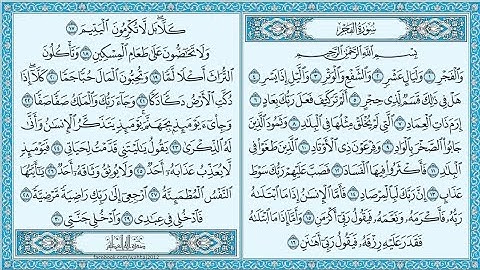 سُورَةُ الْفَجْرِ
بِسْمِ اللَّهِ الرَّحْمَٰنِ الرَّحِيمِ
وَالْفَجْرِ ١ وَلَيَالٍ عَشْرٍ ٢ وَالشَّفْعِ وَالْوَتْرِ ٣ وَاللَّيْلِ إِذَا يَسْرِ ٤
هَلْ فِي ذَٰلِكَ قَسَمٌ لِذِي حِجْرٍ ٥ أَلَمْ تَرَ كَيْفَ فَعَلَ رَبُّكَ بِعَادٍ ٦
إِرَمَ ذَاتِ الْعِمَادِ ٧ الَّتِي لَمْ يُخْلَقْ مِثْلُهَا فِي الْبِلَادِ ٨ وَثَمُودَ الَّذِينَ
جَابُوا الصَّخْرَ بِالْوَادِ ٩ وَفِرْعَوْنَ ذِي الْأَوْتَادِ ١٠ الَّذِينَ طَغَوْا فِي
الْبِلَادِ ١١ فَأَكْثَرُوا فِيهَا الْفَسَادَ ١٢ فَصَبَّ عَلَيْهِمْ رَبُّكَ سَوْطَ
عَذَابٍ ١٣ إِنَّ رَبَّكَ لَبِالْمِرْصَادِ ١٤ فَأَمَّا الْإِنْسَانُ إِذَا مَا ابْتَلَاهُ
رَبُّهُ فَأَكْرَمَهُ وَنَعَّمَهُ فَيَقُولُ رَبِّي أَكْرَمَنِ ١٥ وَأَمَّا إِذَا مَا ابْتَلَاهُ
فَقَدَرَ عَلَيْهِ رِزْقَهُ فَيَقُولُ رَبِّي أَهَانَنِ ١٦
كَلَّا بَلْ لَا تُكْرِمُونَ الْيَتِيمَ ١٧
وَلَا تَحَاضُّونَ عَلَىٰ طَعَامِ الْمِسْكِينِ ١٨ وَتَأْكُلُونَ
التُّرَاثَ أَكْلًا لَمًّا ١٩ وَتُحِبُّونَ الْمَالَ حُبًّا جَمًّا ٢٠ كَلَّا إِذَا
دُكَّتِ الْأَرْضُ دَكًّا دَكًّا ٢١ وَجَاءَ رَبُّكَ وَالْمَلَكُ صَفًّا صَفًّا ٢٢
وَجِيءَ يَوْمَئِذٍ بِجَهَنَّمَ يَوْمَئِذٍ يَتَذَكَّرُ الْإِنْسَانُ وَأَنَّىٰ
لَهُ الذِّكْرَىٰ ٢٣ يَقُولُ يَا لَيْتَنِي قَدَّمْتُ لِحَيَاتِي ٢٤ فَيَوْمَئِذٍ
لَا يُعَذِّبُ عَذَابَهُ أَحَدٌ ٢٥ وَلَا يُوثِقُ وَثَاقَهُ أَحَدٌ ٢٦ يَا أَيَّتُهَا
النَّفْسُ الْمُطْمَئِنَّةُ ٢٧ ارْجِعِي إِلَىٰ رَبِّكِ رَاضِيَةً مَرْضِيَّةً ٢٨
فَادْخُلِي فِي عِبَادِي ٢٩ وَادْخُلِي جَنَّتِي ٣٠